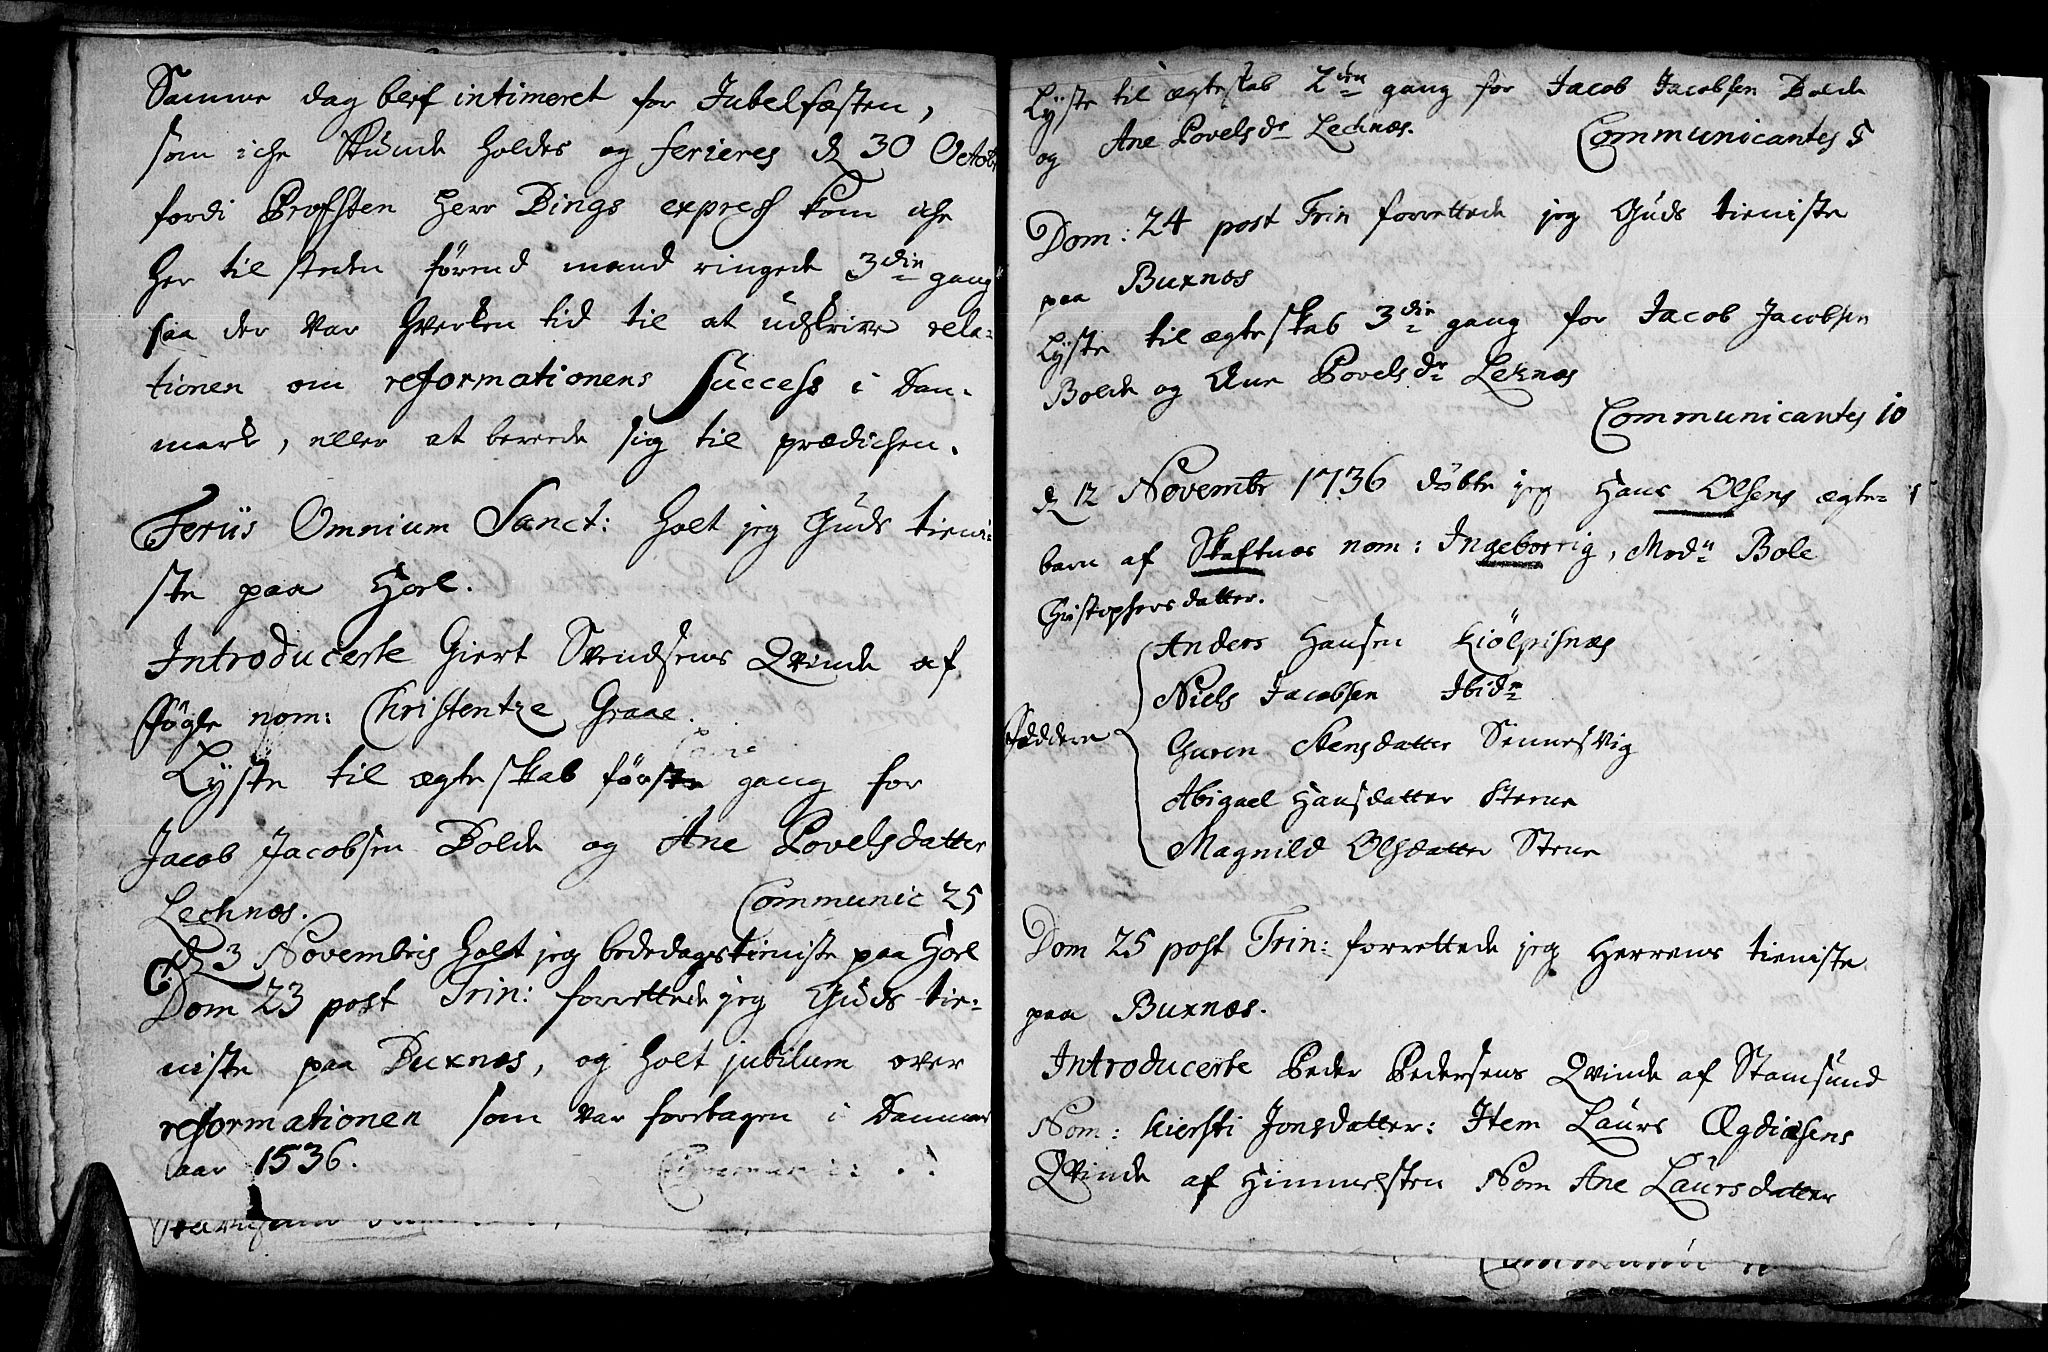 Samme dag blef intimeret for Jubelfæsten,
som iche kunde holdes og ferieres d 30 Octob
fordi Profsten Herr Bings express kom iche
her til steden førend mand ringede 3die gang
saa der var hverken tid til at udskrive rela-
tionen om reformationens Success i Dan-
mark, eller at berede sig til prædichen.
Feriis Omnium Sanct: holt jeg Guds tieni-
ste paa Hoel.
Introducerte Giert Svendsens Qvinde af
Føgle nom: Christentze Graae.
Lyste til ægteskab første gang for
Jacob Jacobsen Bolde og Ane Povelsdatter
Lechnæs. Communic 25
d 3 Novembris holt jeg bededagstieniste paa Hoel
Dom 23 post Trin: forrettede jeg Guds tie-
niste paa Buxnæs, og holt jubilum over
reformationen som var foretagen i Danmar
aar 1536.
Lyste til ægteskab 2den gang for Jacob Jacobsen Bolde
og Ane Povelsdr Lechnæs. Communicantes 5
Dom: 24 post Trin forrettede jeg Guds tieniste
paa Buxnæs
Lyste til ægteskab 3die gang for Jacob Jacobsen
Bolde og Ane Povelsdr Leknæs
Communicantes 10
d 12 Novembr 1736 døbte jeg Hans Olsens ægte-
barn af Skaftnæs nom: Ingeborrig, Modn Bole
Christophersdatter.
Faddere
Anders Hansen Kiølpisnæs
Niels Jacobsen Ibidm
Guren Stensdatter Sennesvig
Abigael Hansdatter Steene
Magnild Olsdatter Steene
Dom 25 post Trin: forrettede jeg Herrens tieniste
paa Buxnæs.
Introducerte Peder Pedersens Qvinde af Stamsund
Nom: Kiersti Jonsdatter: Item Laurs Ægdiæsens
Qvinde af Himmelsten Nom Ane Laursdatter